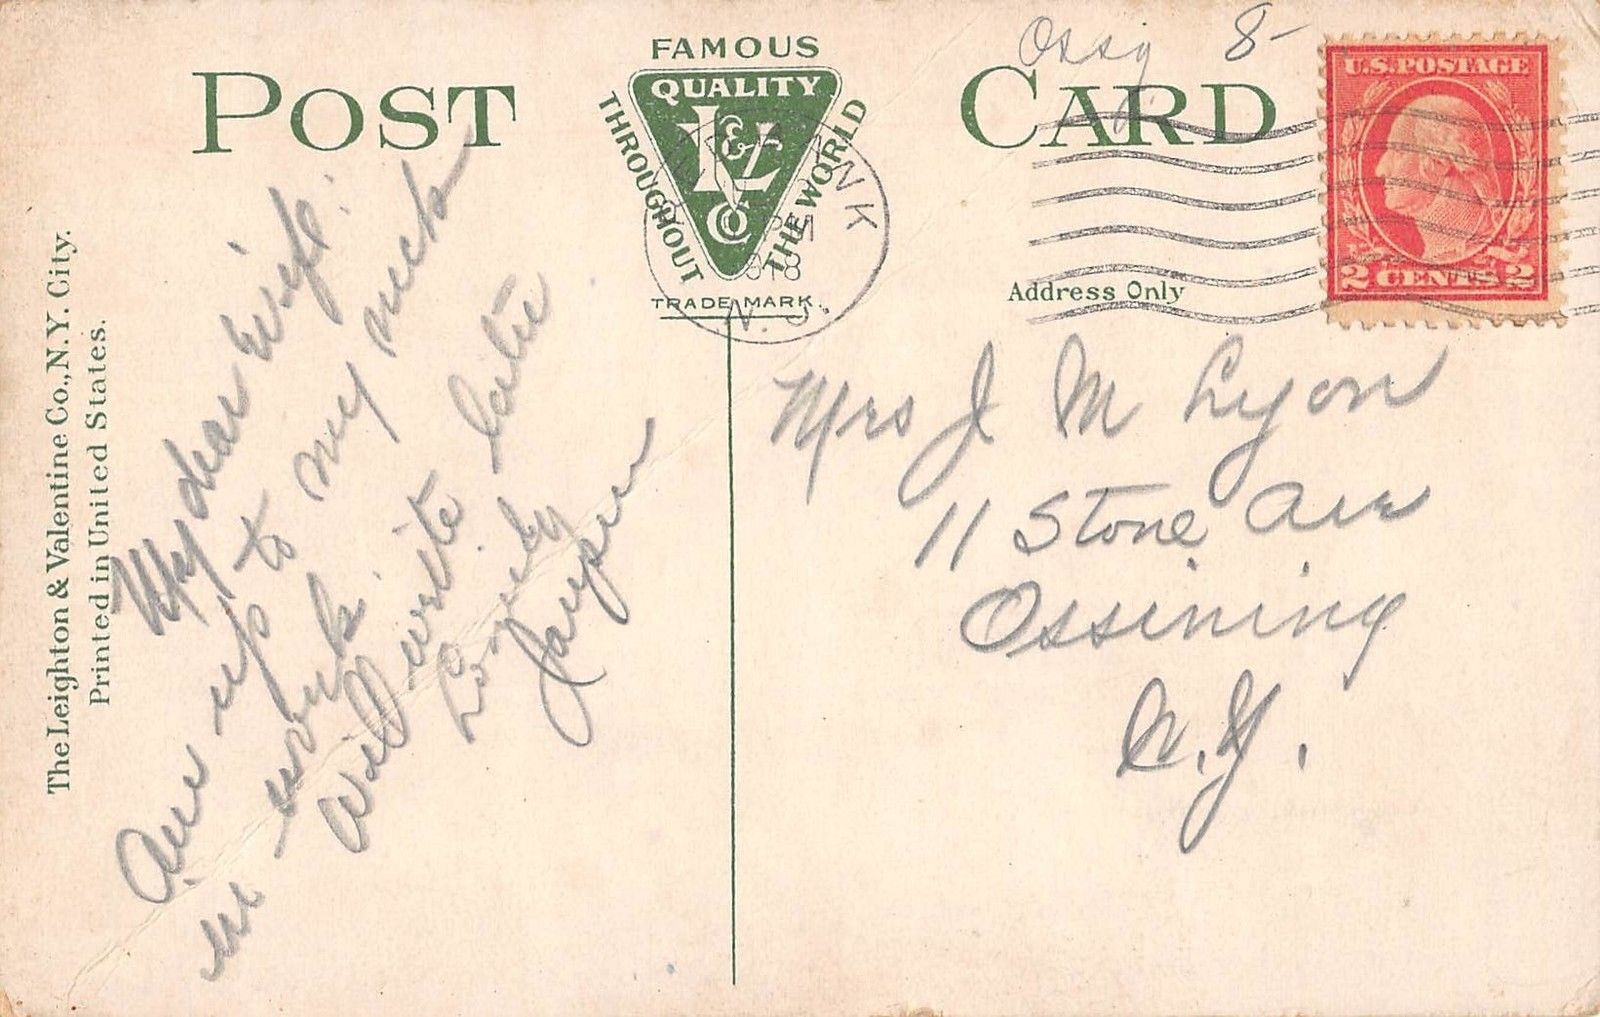 POST CARD
FAMOUS
QUALITY
L & V
Co
THROUGHOUT
THE WORLD
TRADE MARK.
N. J.
1918
Ossg 8-
U.S. POSTAGE
2 CENTS 2
Address Only
The Leighton & Valentine Co., N.Y. City.
Printed in United States.
My dear Wife.
Am up to my neck
in work.
Will write later
Lovingly
Mrs J M Lyon
11 Stone Ave
Ossining
N.Y.